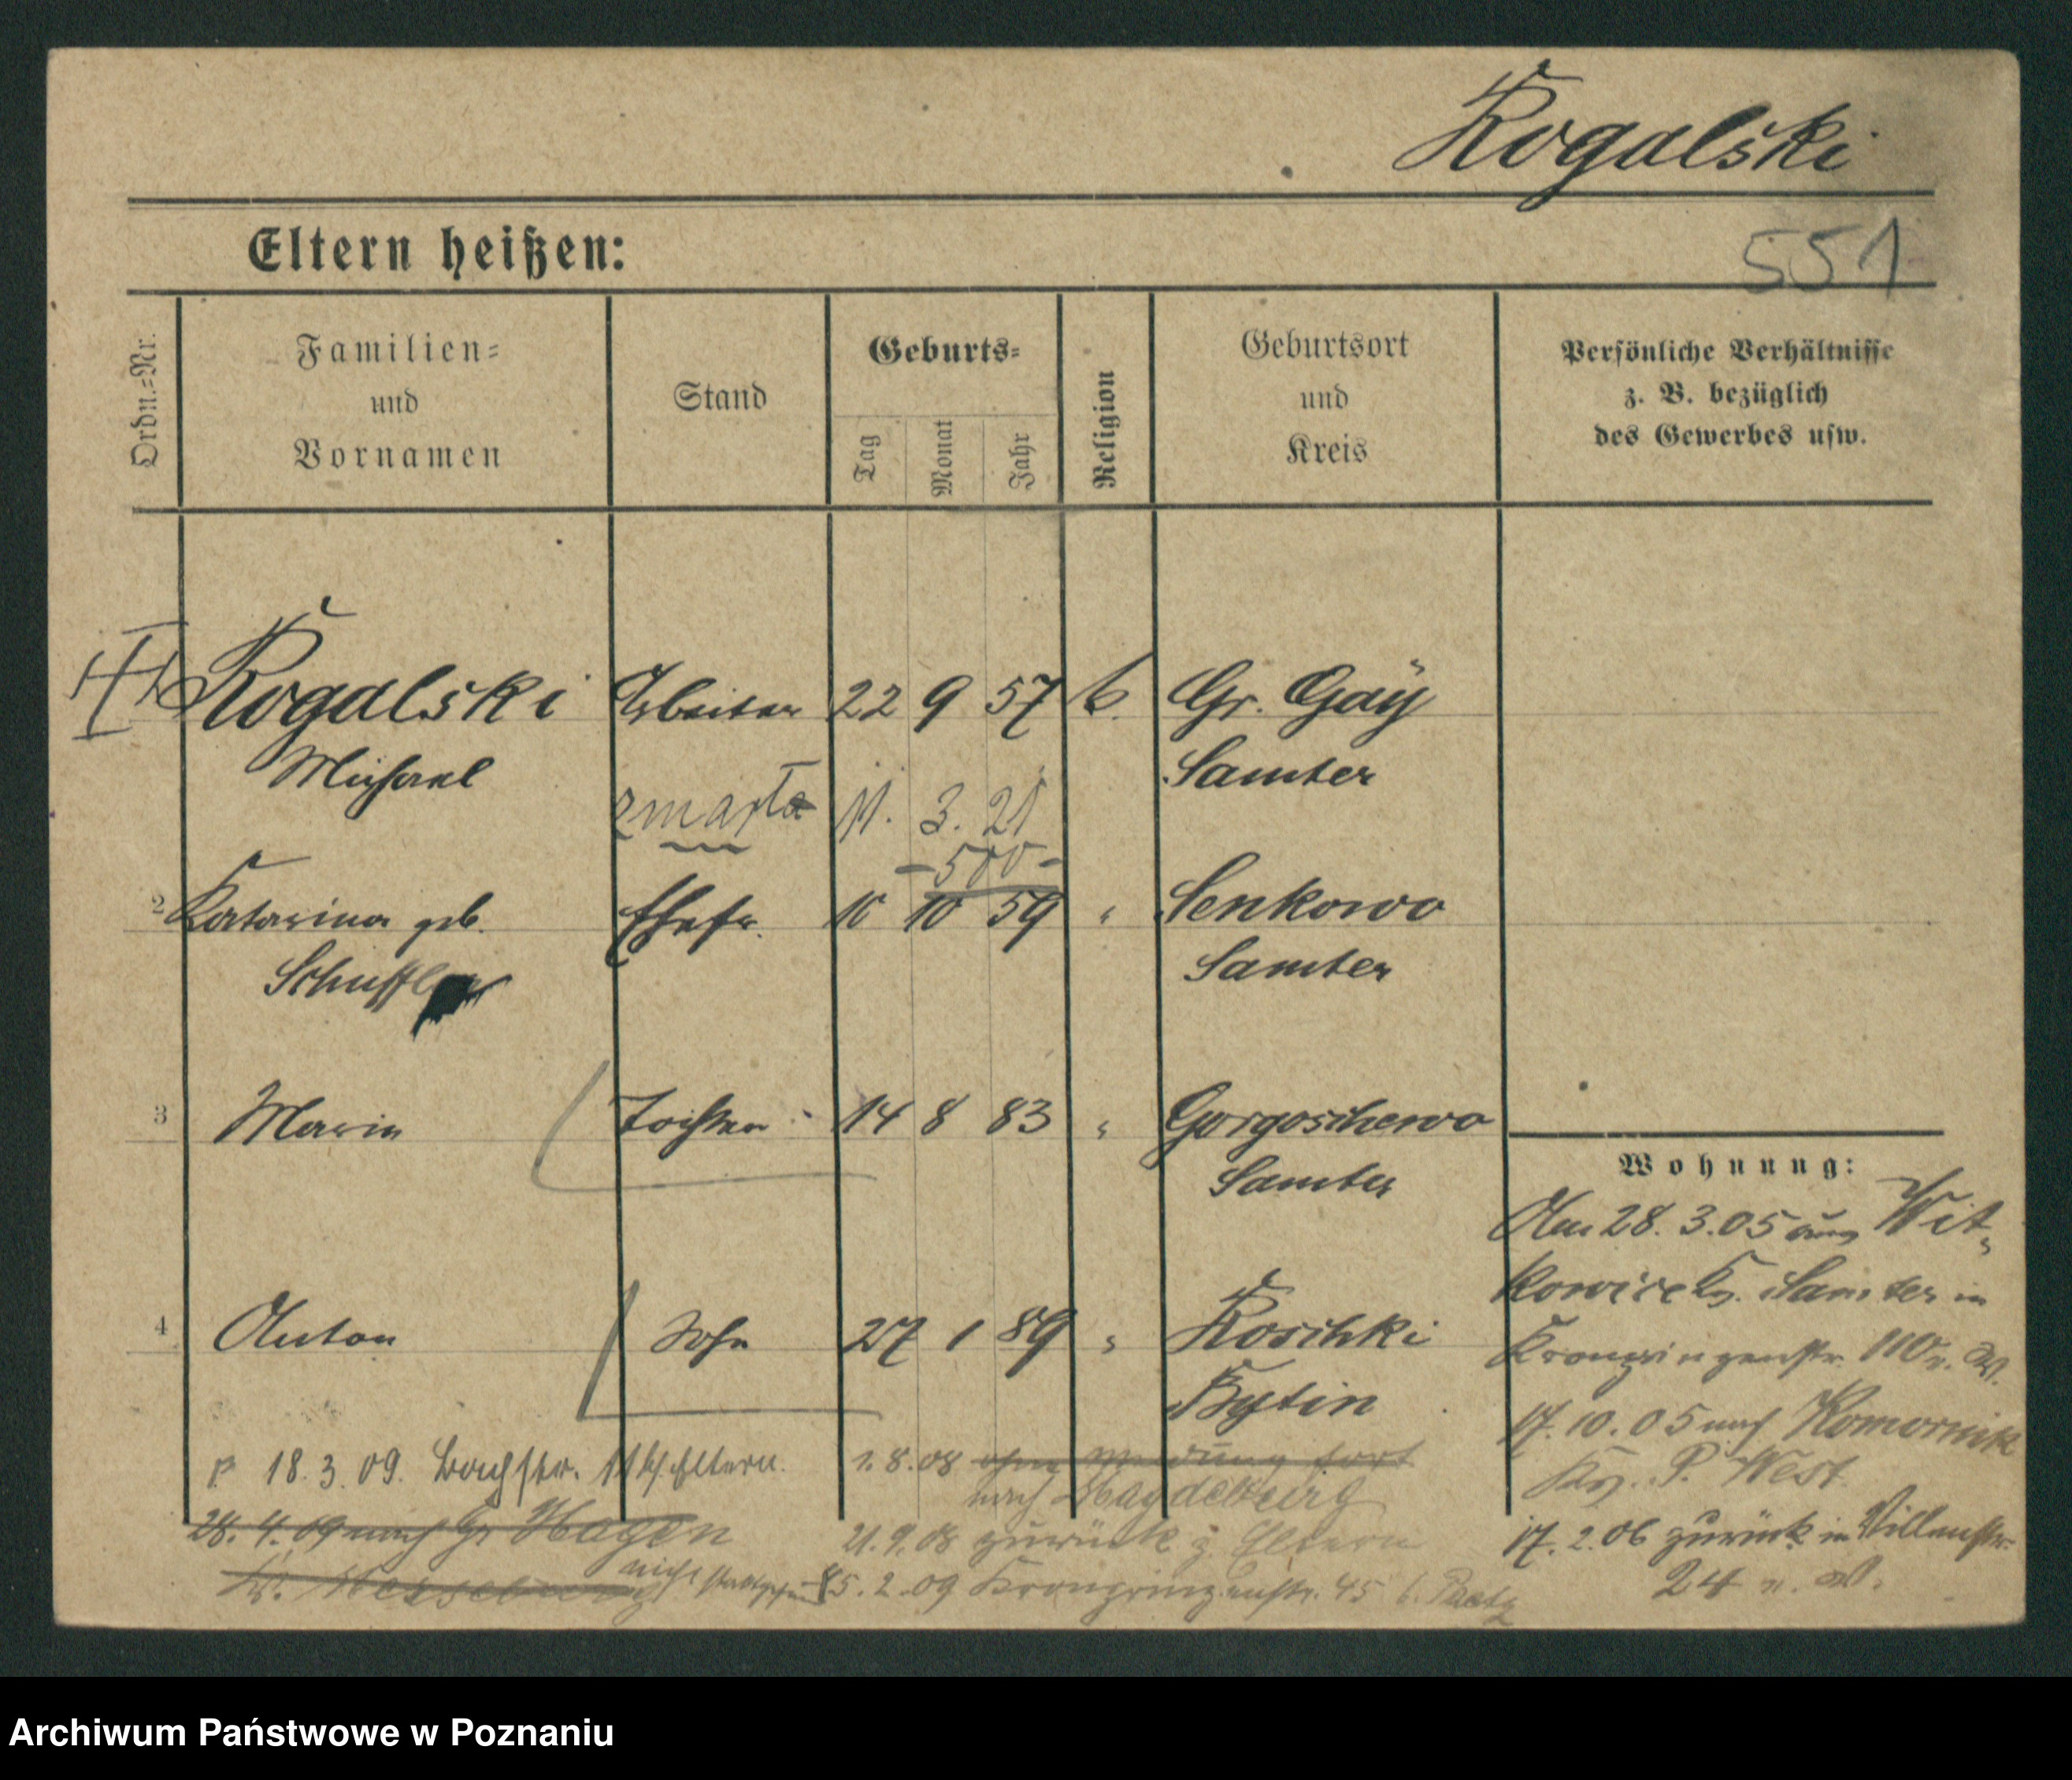 Rogalski
Eltern heißen:
551
Ordn.=Nr.
Familien=
und
Vornamen
Stand
Geburts=
Tag
Monat
Jahr
Religion
Geburtsort
und
Kreis
Persönliche Verhältnisse
z. B. bezüglich
des Gewerbes usw.
Rogalski Arbeiter 22 9 57 k. Gr. Gay
Michael Samter
zmarła 11. 3. 21
-500-
2 Katarina geb. Ehefr. 10 10 59 " Senkowo
Samter
3 Marie Tochter 14 8 83 " Gorgoschewo
Samter
4 Anton Sohn 27 1 89 " Roschki
Bytin
Wohnung:
Am 28. 3. 05 aus Wit-
kowice Kr. Samter in
Kronprinzenstr. 110
17. 10. 05 nach Komornik
Kr. P. West
17. 2. 06 zurück in Villenstr.
24
18. 3. 09. Bachstr. Eltern.
28. 4. 09 nach Gr Hagen
Kr. Merseburg nicht
1. 8. 08 ohne Meldung fort
nach Magdeburg
21. 9. 08 zurück z. Eltern
5. 2. 09 Kronprinzenstr. 45 b. Paetz
Archiwum Państwowe w Poznaniu